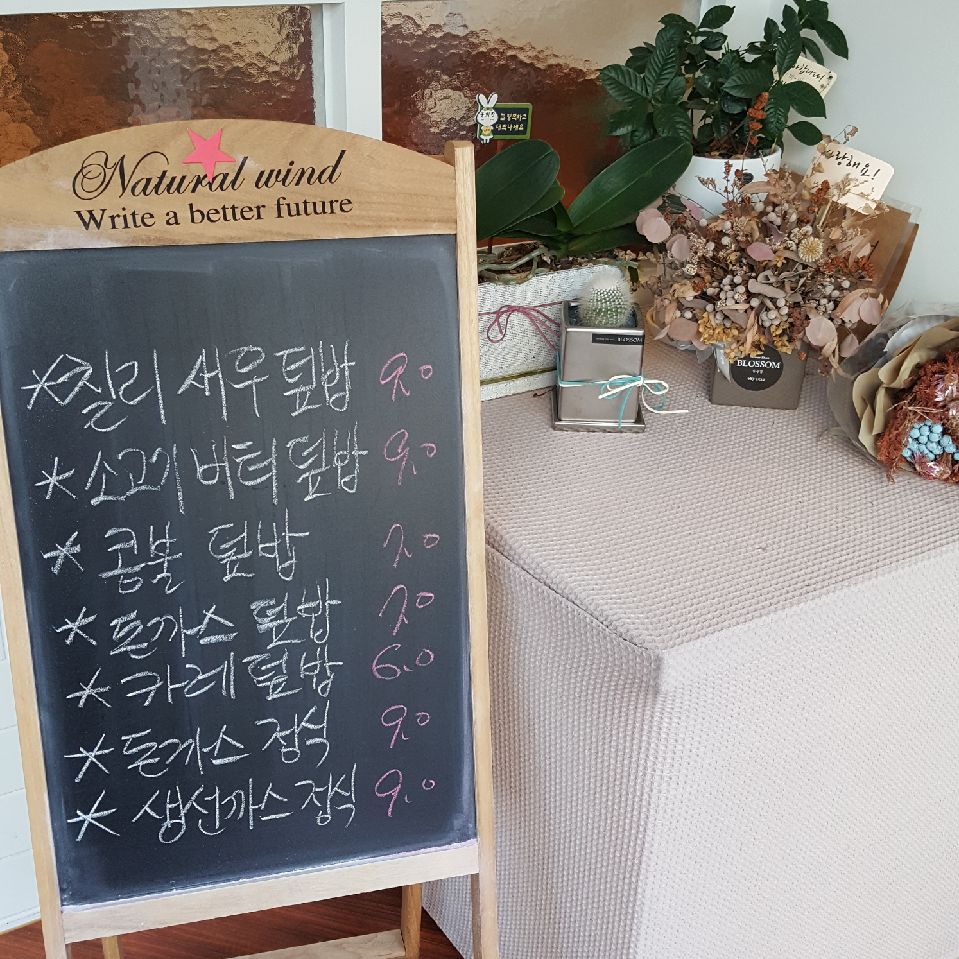 Natural wind
Write a better future
*칠리 새우 덮밥 9.0
*소고기 버터 덮밥 9.0
*콩불 덮밥 7.0
*돈까스 덮밥 7.0
*카레 덮밥 6.0
*돈까스 정식 9.0
*생선까스 정식 9.0
랑해요!
BLOSSOM
BLOSSOM